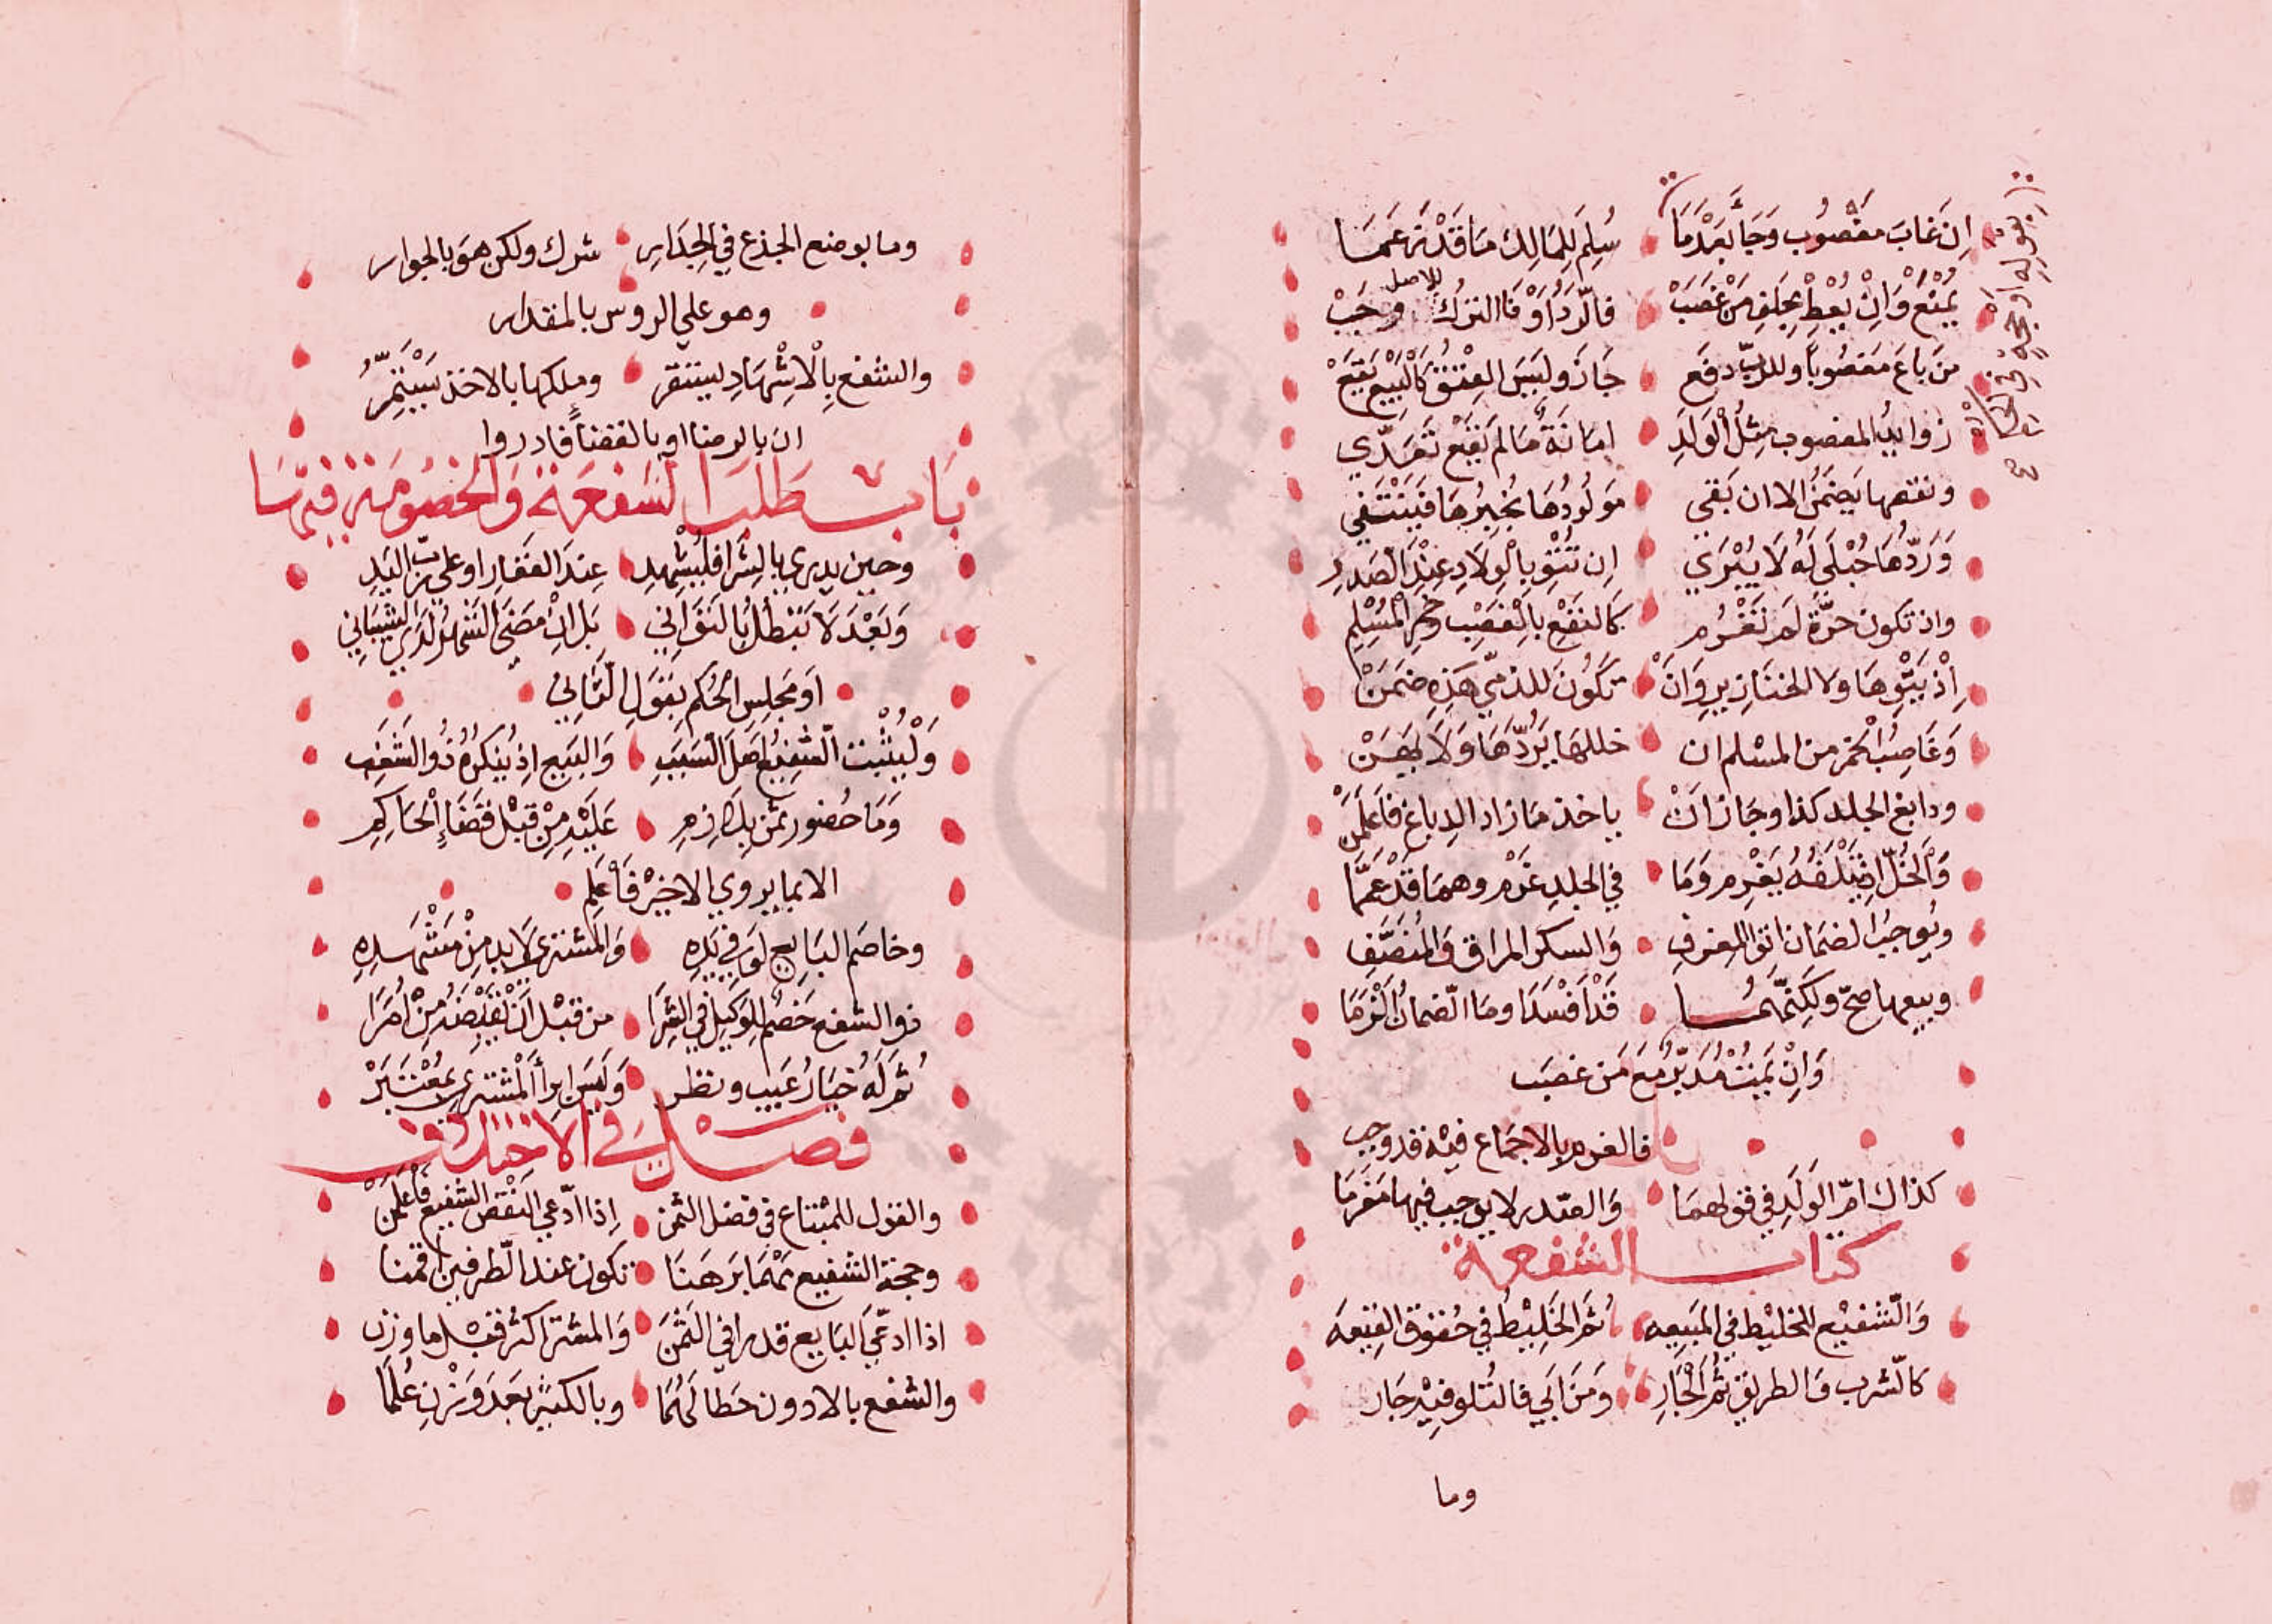 ان غاب مغصوب وجا بعد ما سلم للمالك ما قد زعما
يمنع وان يعط بحلف من غصب فالرد او فا الترك للاصل وجب
من باع مغصوبا وللرب دفع جاز وليس العتق كالبيع يقع
زوايد المغصوب مثل الولد امانة ما لم يقع تعدي
ونقصها يضمن الا ان بقي مولودها بخيرها فينتفي
وردها حبلى له لا يبري ان تتو بالولاد عند الصدر
واذ تكون حرة لم تغرم كالنفع بالغصب وخمر المسلم
اذ يتوها ولا الخنازير وان تكون للذمي هذه ضمن
وغاصب الخمر من المسلم ان خللها يردها ولا يهن
ودابغ الجلد كذا وجاز ان ياخذ ما زاد الدباغ فاعلمن
والخل اذ يتلفه يغرم وما في الجلد غرم وهما قد عمما
ويوجب الضمان اتوا المعزف والسكر المراق والمنصف
وبيعها صح ولكنهما قد افسدا وما الضمان الزما
وان يمت مدبر مع من غصب
فالغرم بالاجماع فيه قد وجب
كذاك ام الولد في قولهما والصدر لا يوجب فيها مغرما
كتاب الشفعة
والشفيع الخليط في المبيعه ثم الخليط في حقوق البيعه
كالشرب والطريق ثم الجار ومن ابي فالتلو فيه جار
وما
وما بوضع الجذع في الجدار شرك ولكن هو بالجوار
وهو علي الروس بالمقدار
والشفع بالاشهاد ليستقر وملكها بالاخذ يستمر
ان بالرضا او بالقضا فادروا
باب طلب الشفعة والخصومة فيها
وحين يدري بالشرا فليشهد عند العقار او على رب اليد
وبعد لا تبطل بالتواني بل ان مضى الشهر لدى الشيباني
او مجلس الحكم بقول الثاني
وليثبت الشفيع اصل السبب والبيع اذ ينكره ذو الشغب
وما حضور ثمن بلازم عليه من قبل قضاء الحاكم
الا بما يروي الاخير فاعلم
وخاصم البايع لو في يده والمشتري لا بد من مشهده
ذو الشفعه خصم للوكيل في الشرا من قبل ان يقبضه من امرا
ثم له خيار عيب ونظر وليس ابرأ المشتري بمعتبر
فصل في الاختلاف
والقول للمبتاع في فضل الثمن اذا ادعي النقص الشفيع فاعلمن
وحجة الشفيع مهما برهنا تكون عند الطرفين اقمنا
اذا ادعي البايع قدرا في الثمن والمشتر اكثر قبل ما وزن
والشفع بالادون حطا لهما وبالكبير بعد وزن علما